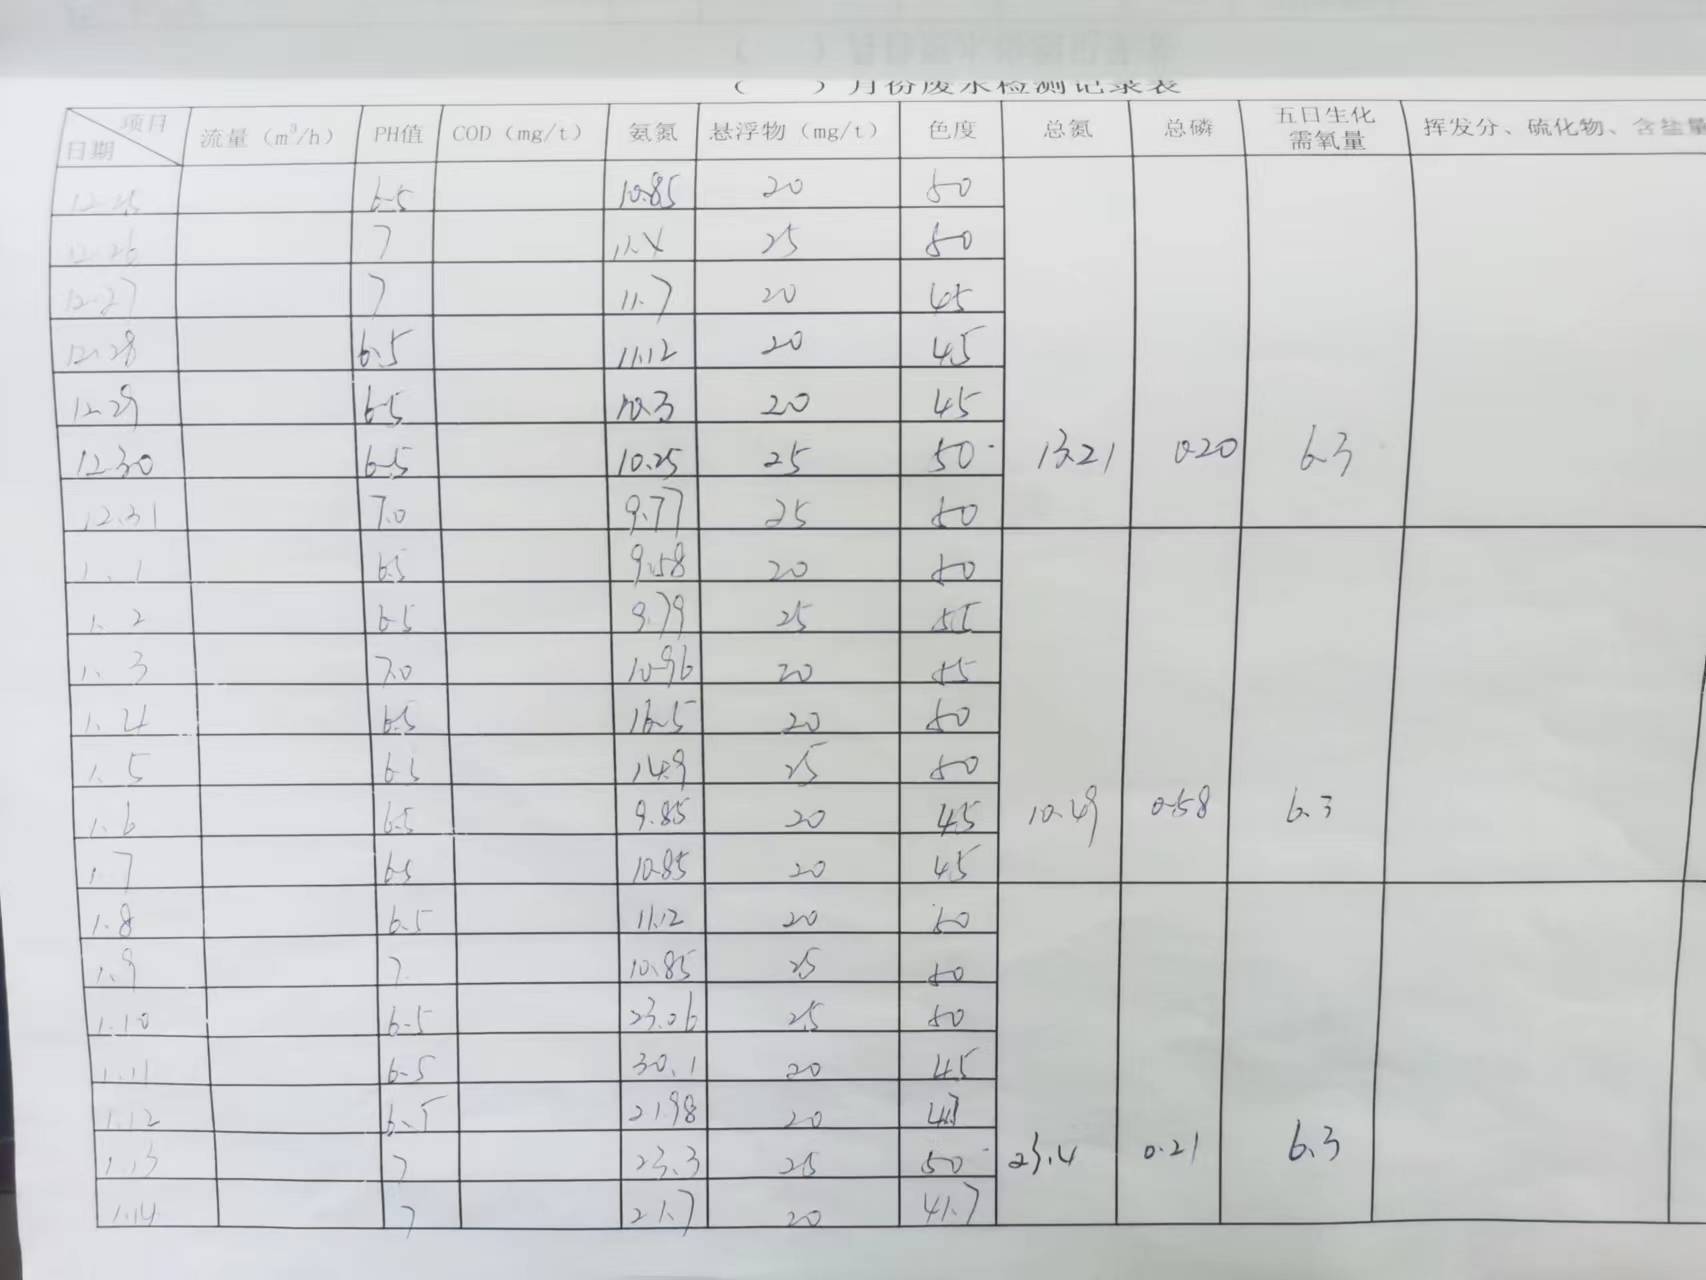 （　　）月份废水检测记录表
项目 日期 流量（m³/h） PH值 COD（mg/t） 氨氮 悬浮物（mg/t） 色度 总氮 总磷 五日生化需氧量 挥发分、硫化物、含盐量
12.25 6.5 10.85 20 50
12.26 7 11.4 25 50
12.27 7 11.7 20 45
12.28 6.5 11.12 20 45
12.29 6.5 10.3 20 45
12.30 6.5 10.25 25 50 13.21 0.20 6.3
12.31 7.0 9.77 25 50
1.1 6.5 9.58 20 50
1.2 6.5 9.79 25
1.3 7.0 10.96 20 45
1.4 6.5 16.5 20 50
1.5 6.5 14.9 25 50
1.6 6.5 9.85 20 45 10.49 0.58 6.3
1.7 6.5 10.85 20 45
1.8 6.5 11.12 20 50
1.9 7 10.85 25 50
1.10 6.5 23.06 25 50
1.11 6.5 30.1 20 45
1.12 6.5 21.98 20
1.13 7 23.3 25 50 23.4 0.21 6.3
1.14 7 21.7 20 41.7